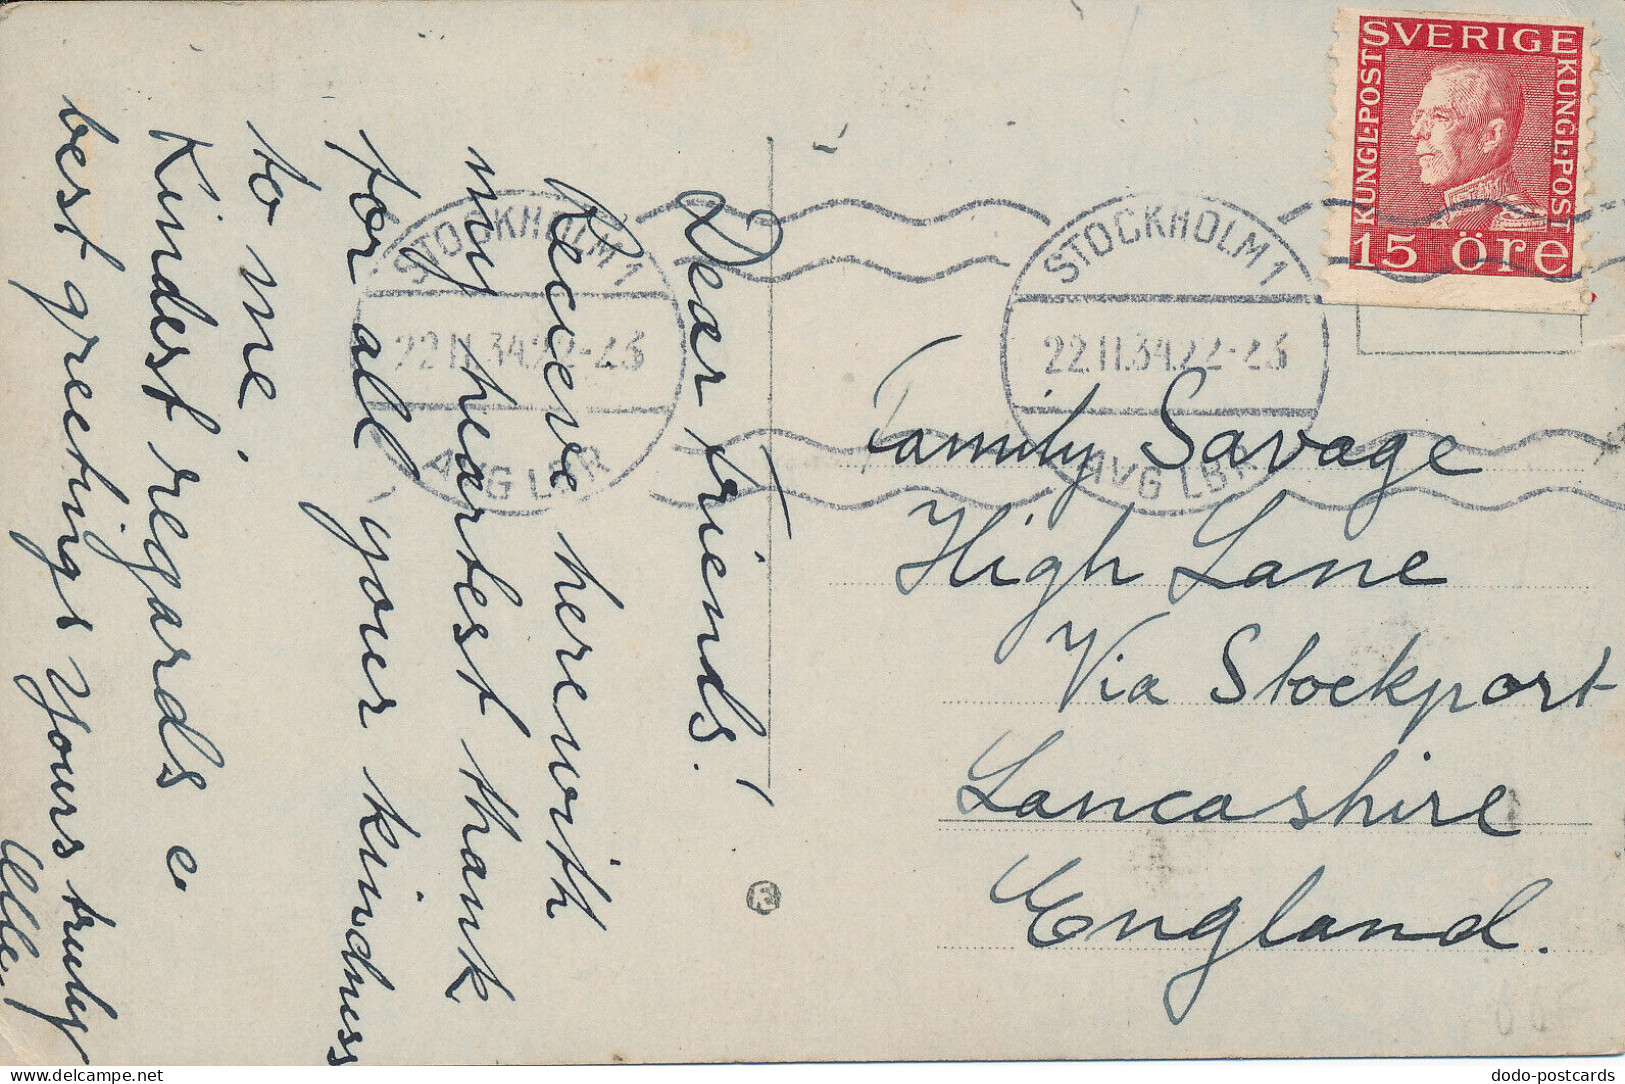 Dear friends!
Receive herewith
my heartest thank
for all your kindness
to me.
Kindest regards e
best greetings Yours truly
Olle!
SVERIGE
KUNGL·POST
KUNGL·POST
15 öre
STOCKHOLM 1
22.11.34.22-23
AVG LBR
STOCKHOLM 1
22.11.34.22-23
AVG LBR
Family Savage
High Lane
Via Stockport
Lancashire
England.
dodo-postcards